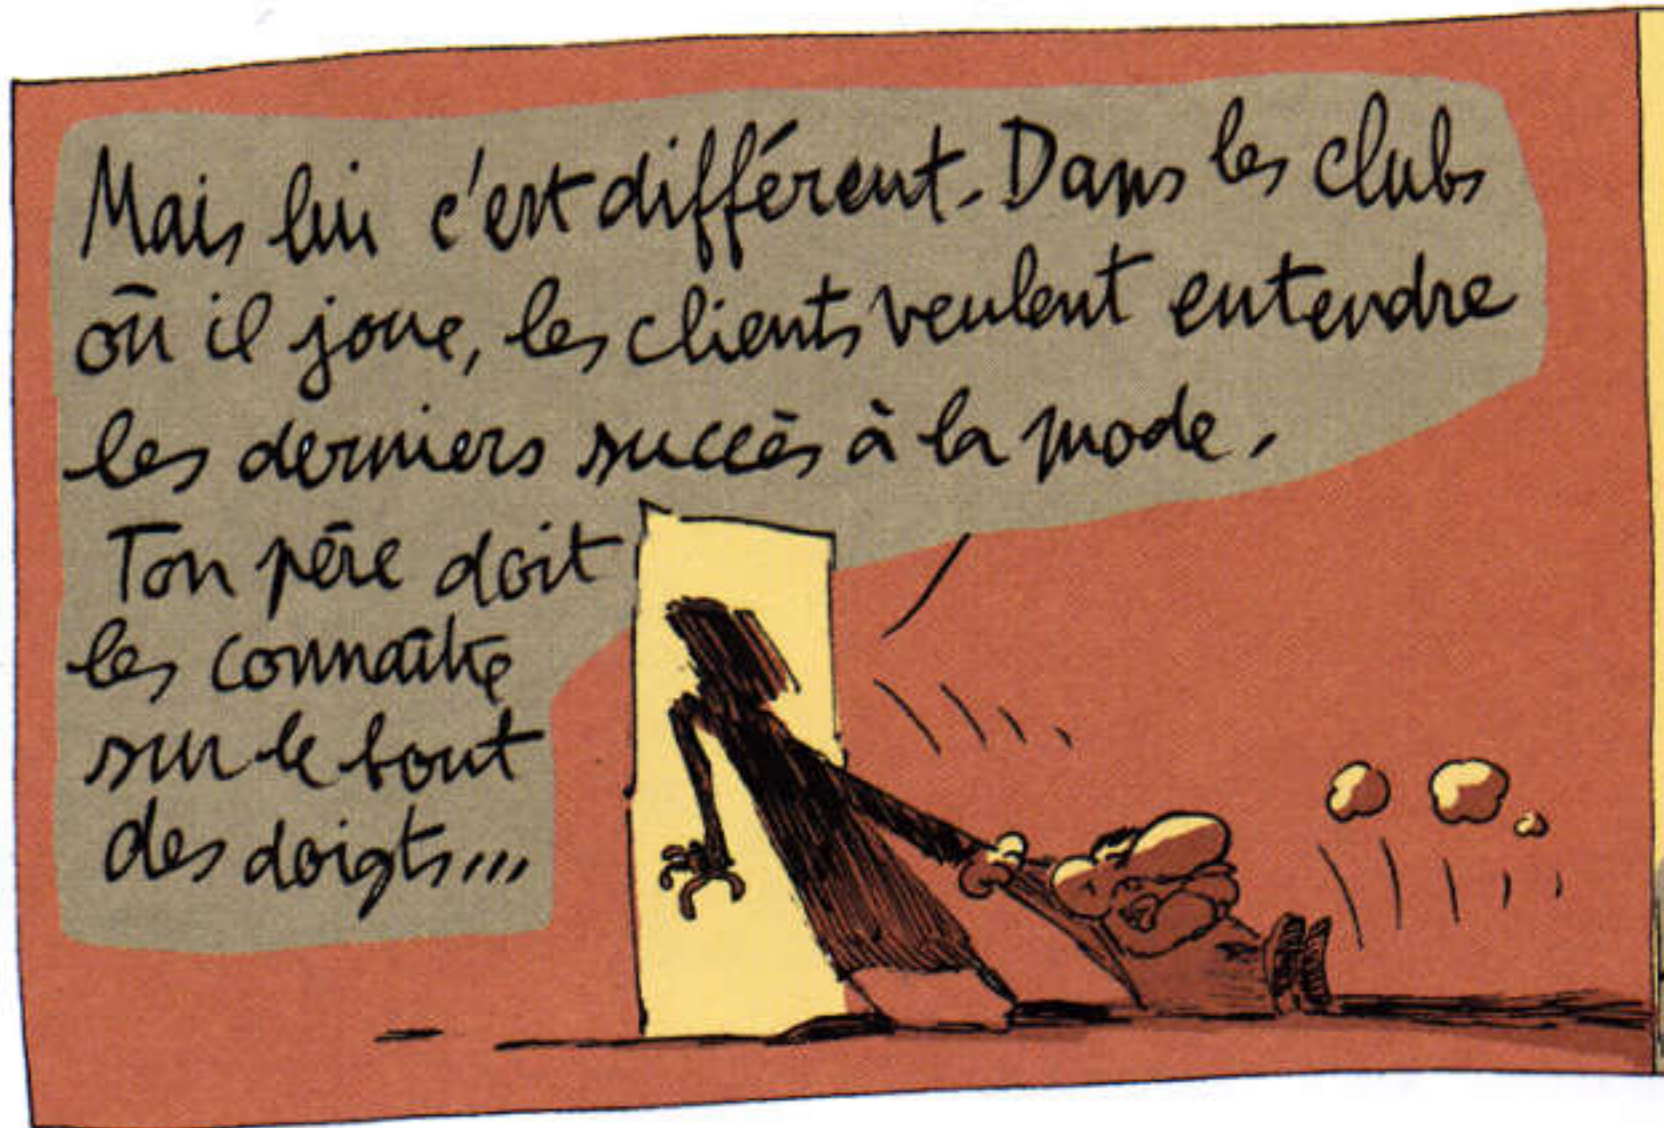 Mais lui c'est différent. Dans les clubs
où il joue, les clients veulent entendre
les derniers succès à la mode.
Ton père doit
les connaître
sur le bout
des doigts...